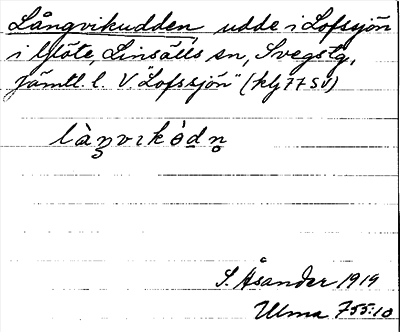 Långvikudden udde i Lofssjön
i Glöte, Linsälls sn, Svegs tg,
Jämtl. l. V. "Lofssjön" (klj 77 SV)
làŋvikòdn̥
S. Åsander 1919
Ulma 755:10